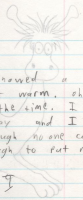 howed a
warm. oh
the time. I
ay and I
ough no one ca
ugh to eat m
I